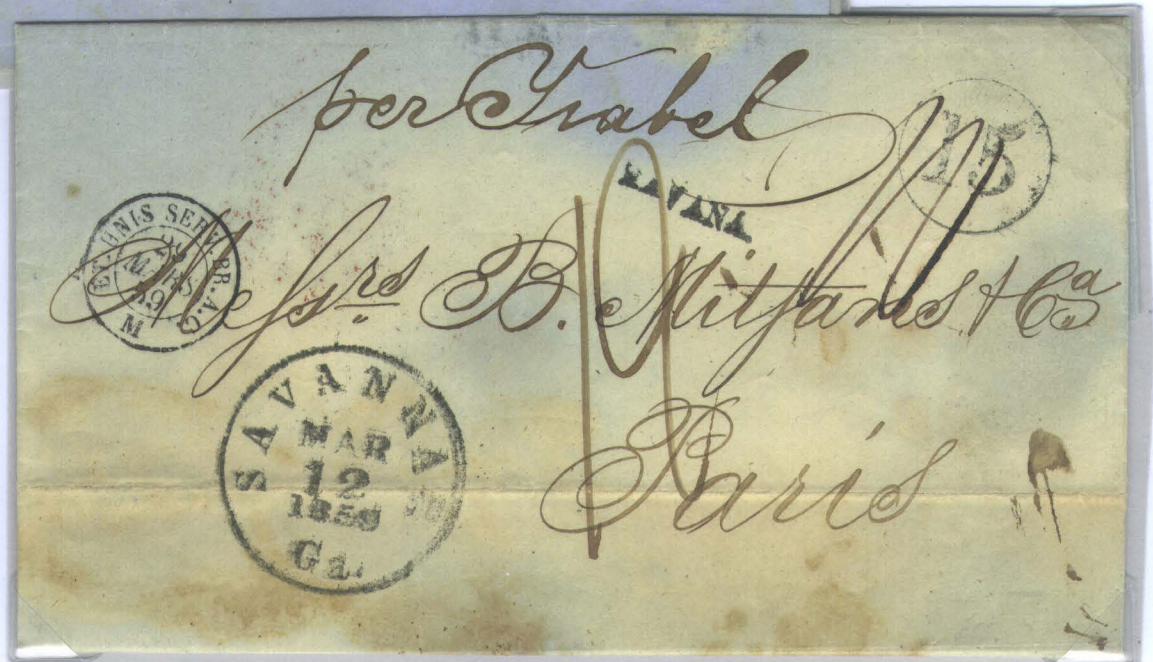 per Isabel
15
HAVANA
ET.UNIS SERV.BR.A.C
MARS
59
M
Messrs B. Mitjans & Ca
SAVANNAH
MAR
12
1859
Ga.
Paris